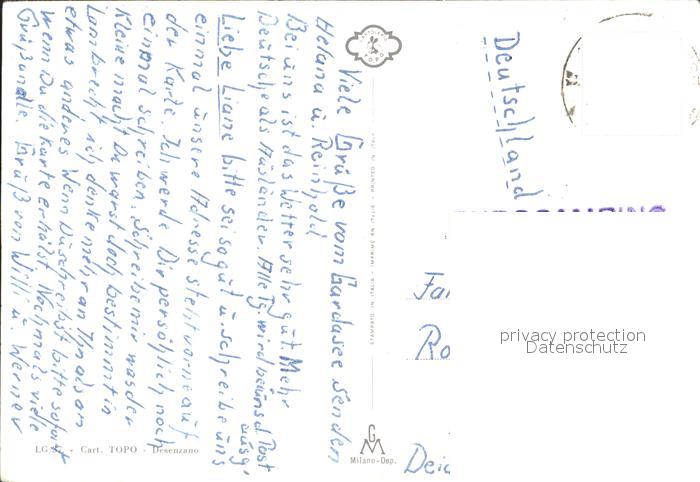 Viele Grüße vom Gardasee senden
Helana u. Reinhold
Bei uns ist das Wetter sehr gut. Mehr
Deutsche als Ausländer. Alle Tg. wird bei uns d. Post
ausg.
Liebe Liane bitte sei so gut u. schreibe uns
einmal unsere Adresse steht vorne auf
der Karte. Ich werde Dir persöhlich noch
einmal schreiben. Schreibe mir was der
Kleine macht Du warst doch bestimmt in
Lambrecht ich denke mehr an
etwas anderes Wenn Du schreibst bitte sofort
wenn Du die Karte erhälst Nochmals viele
Grüß an alle. Grüß von Willi u. Werner
LG
Cart. TOPO - Desenzano
TOPO
GM
Milano-Dep.
Deutschland
Fa
Ro
Deic
privacy protection
Datenschutz